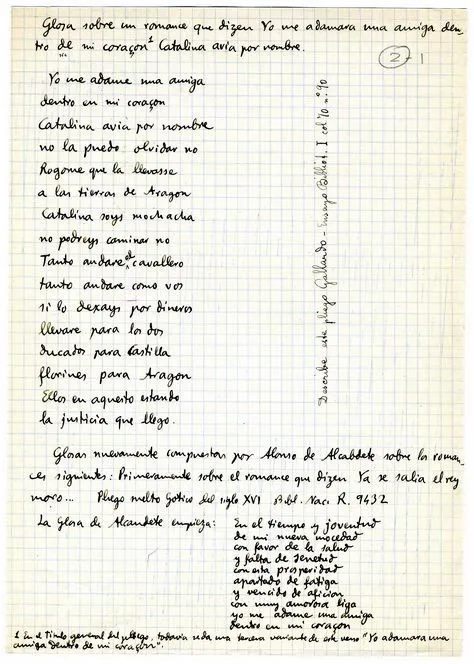 Glosa sobre un romance que dizen Yo me adamara una amiga den-
tro de mi coraçon¹ Catalina avia por nombre.
2-1
Yo me adame una amiga
dentro en mi coraçon
Catalina avia por nombre
no la puedo olvidar no
Rogome que la llevasse
a las tierras de Aragon
Catalina soys mochacha
no podreys caminar no
Tanto andare el cavallero
tanto andare como vos
si lo dexays por dineros
llevare para los dos
ducados para Castilla
florines para Aragon
Ellos en aquesto estando
la justicia que llego.
Describe este pliego Gallardo - Ensayo Bibliot. I col 70 nº 90
Glosas nuevamente compuestas por Alonso de Alcabdete sobre los roman-
ces siguientes: Primeramente sobre el romance que dizen Ya se salia el rey
moro... Pliego suelto Gotico del siglo XVI Bibl. Naci. R. 9432
La Glosa de Alcaudete empieza:
En el tiempo y joventud
de mi nueva mocedad
con favor de la salud
y falta de senetud
con esta prosperidad
apartado de fatiga
y vencido de aficion
con muy amorosa liga
yo me adame una amiga
dentro en mi coraçon
1 En el titulo general del pliego, todavia se da una tercera variante de este verso "Yo adamara una
amiga dentro de mi coraçon".